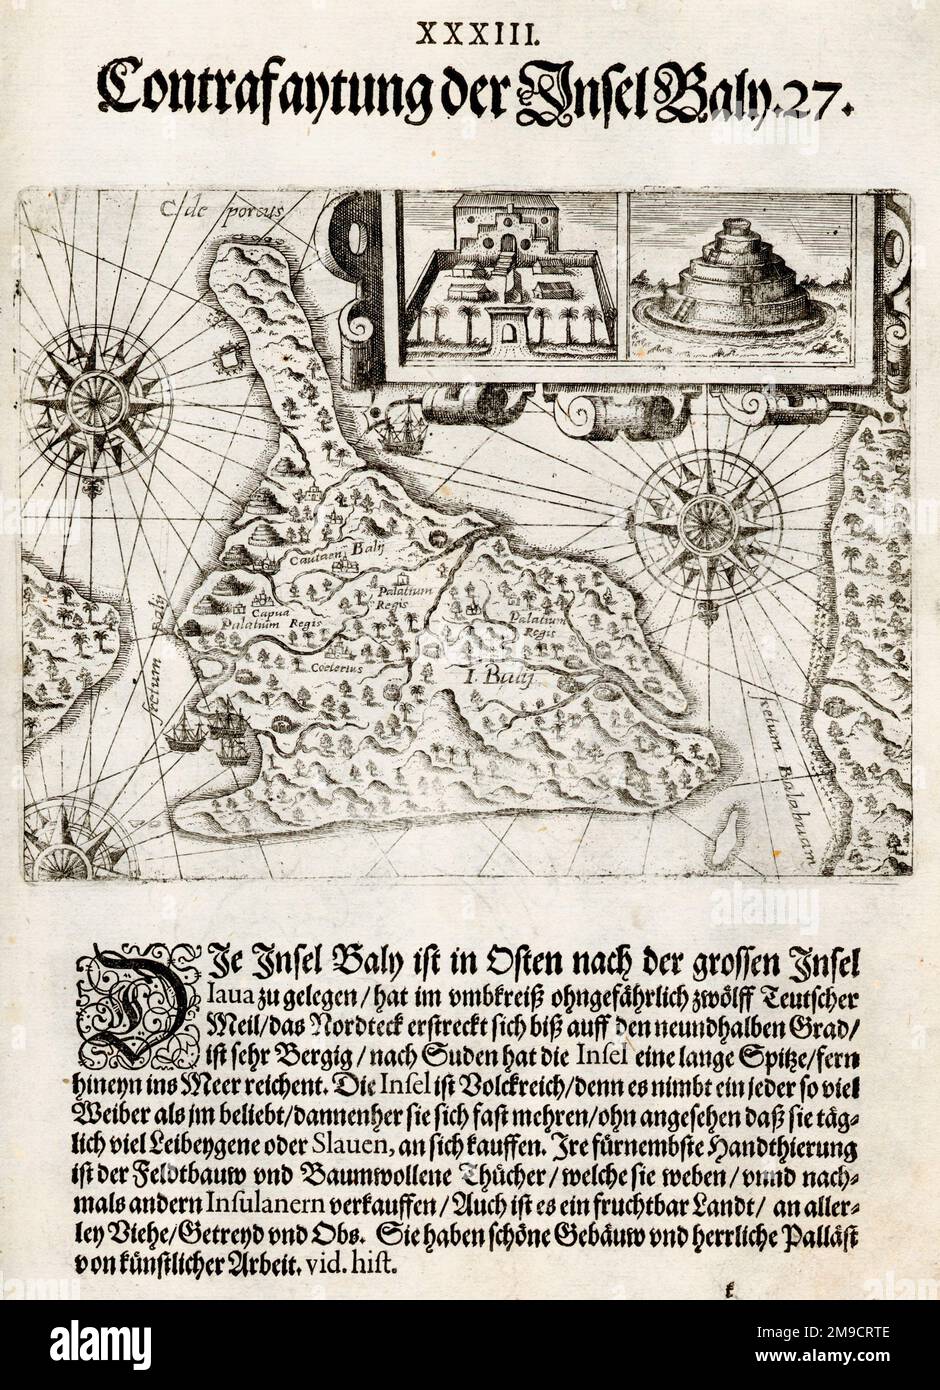 XXXIII.
Contrafaytung der Insel Baly. 27.
C. de porcus
Cautaen Balij
Palatium
Regis
Capua
Palatium Regis
Palatium
Regis
Coeterius
I. Balij
fretum Balij
fretum Balabuam
DJe Jnsel Baly ist in Osten nach der grossen Jnsel
Iaua zu gelegen / hat im vmbkreiß ohngefährlich zwölff Teutscher
Meil / das Nordteck erstreckt sich biß auff den neundhalben Grad /
ist sehr Bergig / nach Suden hat die Insel eine lange Spitze / fern
hineyn ins Meer reichent. Die Insel ist Volckreich / denn es nimbt ein jeder so viel
Weiber als jm beliebt / dannenher sie sich fast mehren / ohn angesehen daß sie täg-
lich viel Leibeygene oder Slauen, an sich kauffen. Jre fürnembste Handthierung
ist der Feldtbauw vnd Baumwollene Thücher / welche sie weben / vnnd nach-
mals andern Insulanern verkauffen / Auch ist es ein fruchtbar Landt / an aller-
ley Viehe / Getreyd vnd Obs. Sie haben schöne Gebäuw vnd herrliche Palläst
von künstlicher Arbeit. vid. hist.
k
alamy
Image ID: 2M9CRTE
www.alamy.com